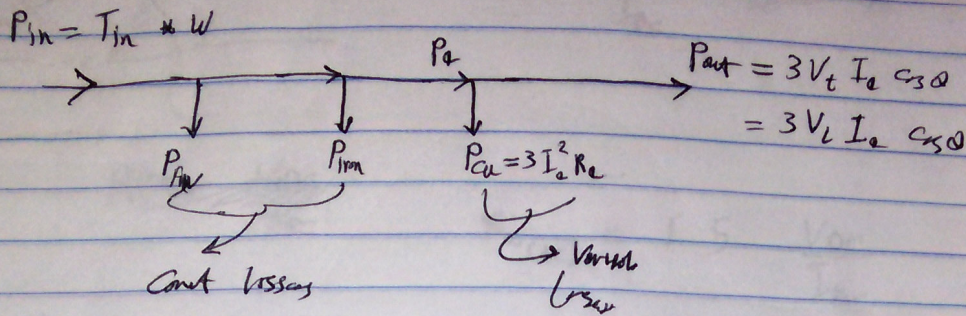 Pin = Tin * W
Pa
Pout = 3 Vt Ia cosθ
= 3 VL Ia cosθ
Piron
Pcu = 3 Ia² Ra
Const losses
Variable
losses